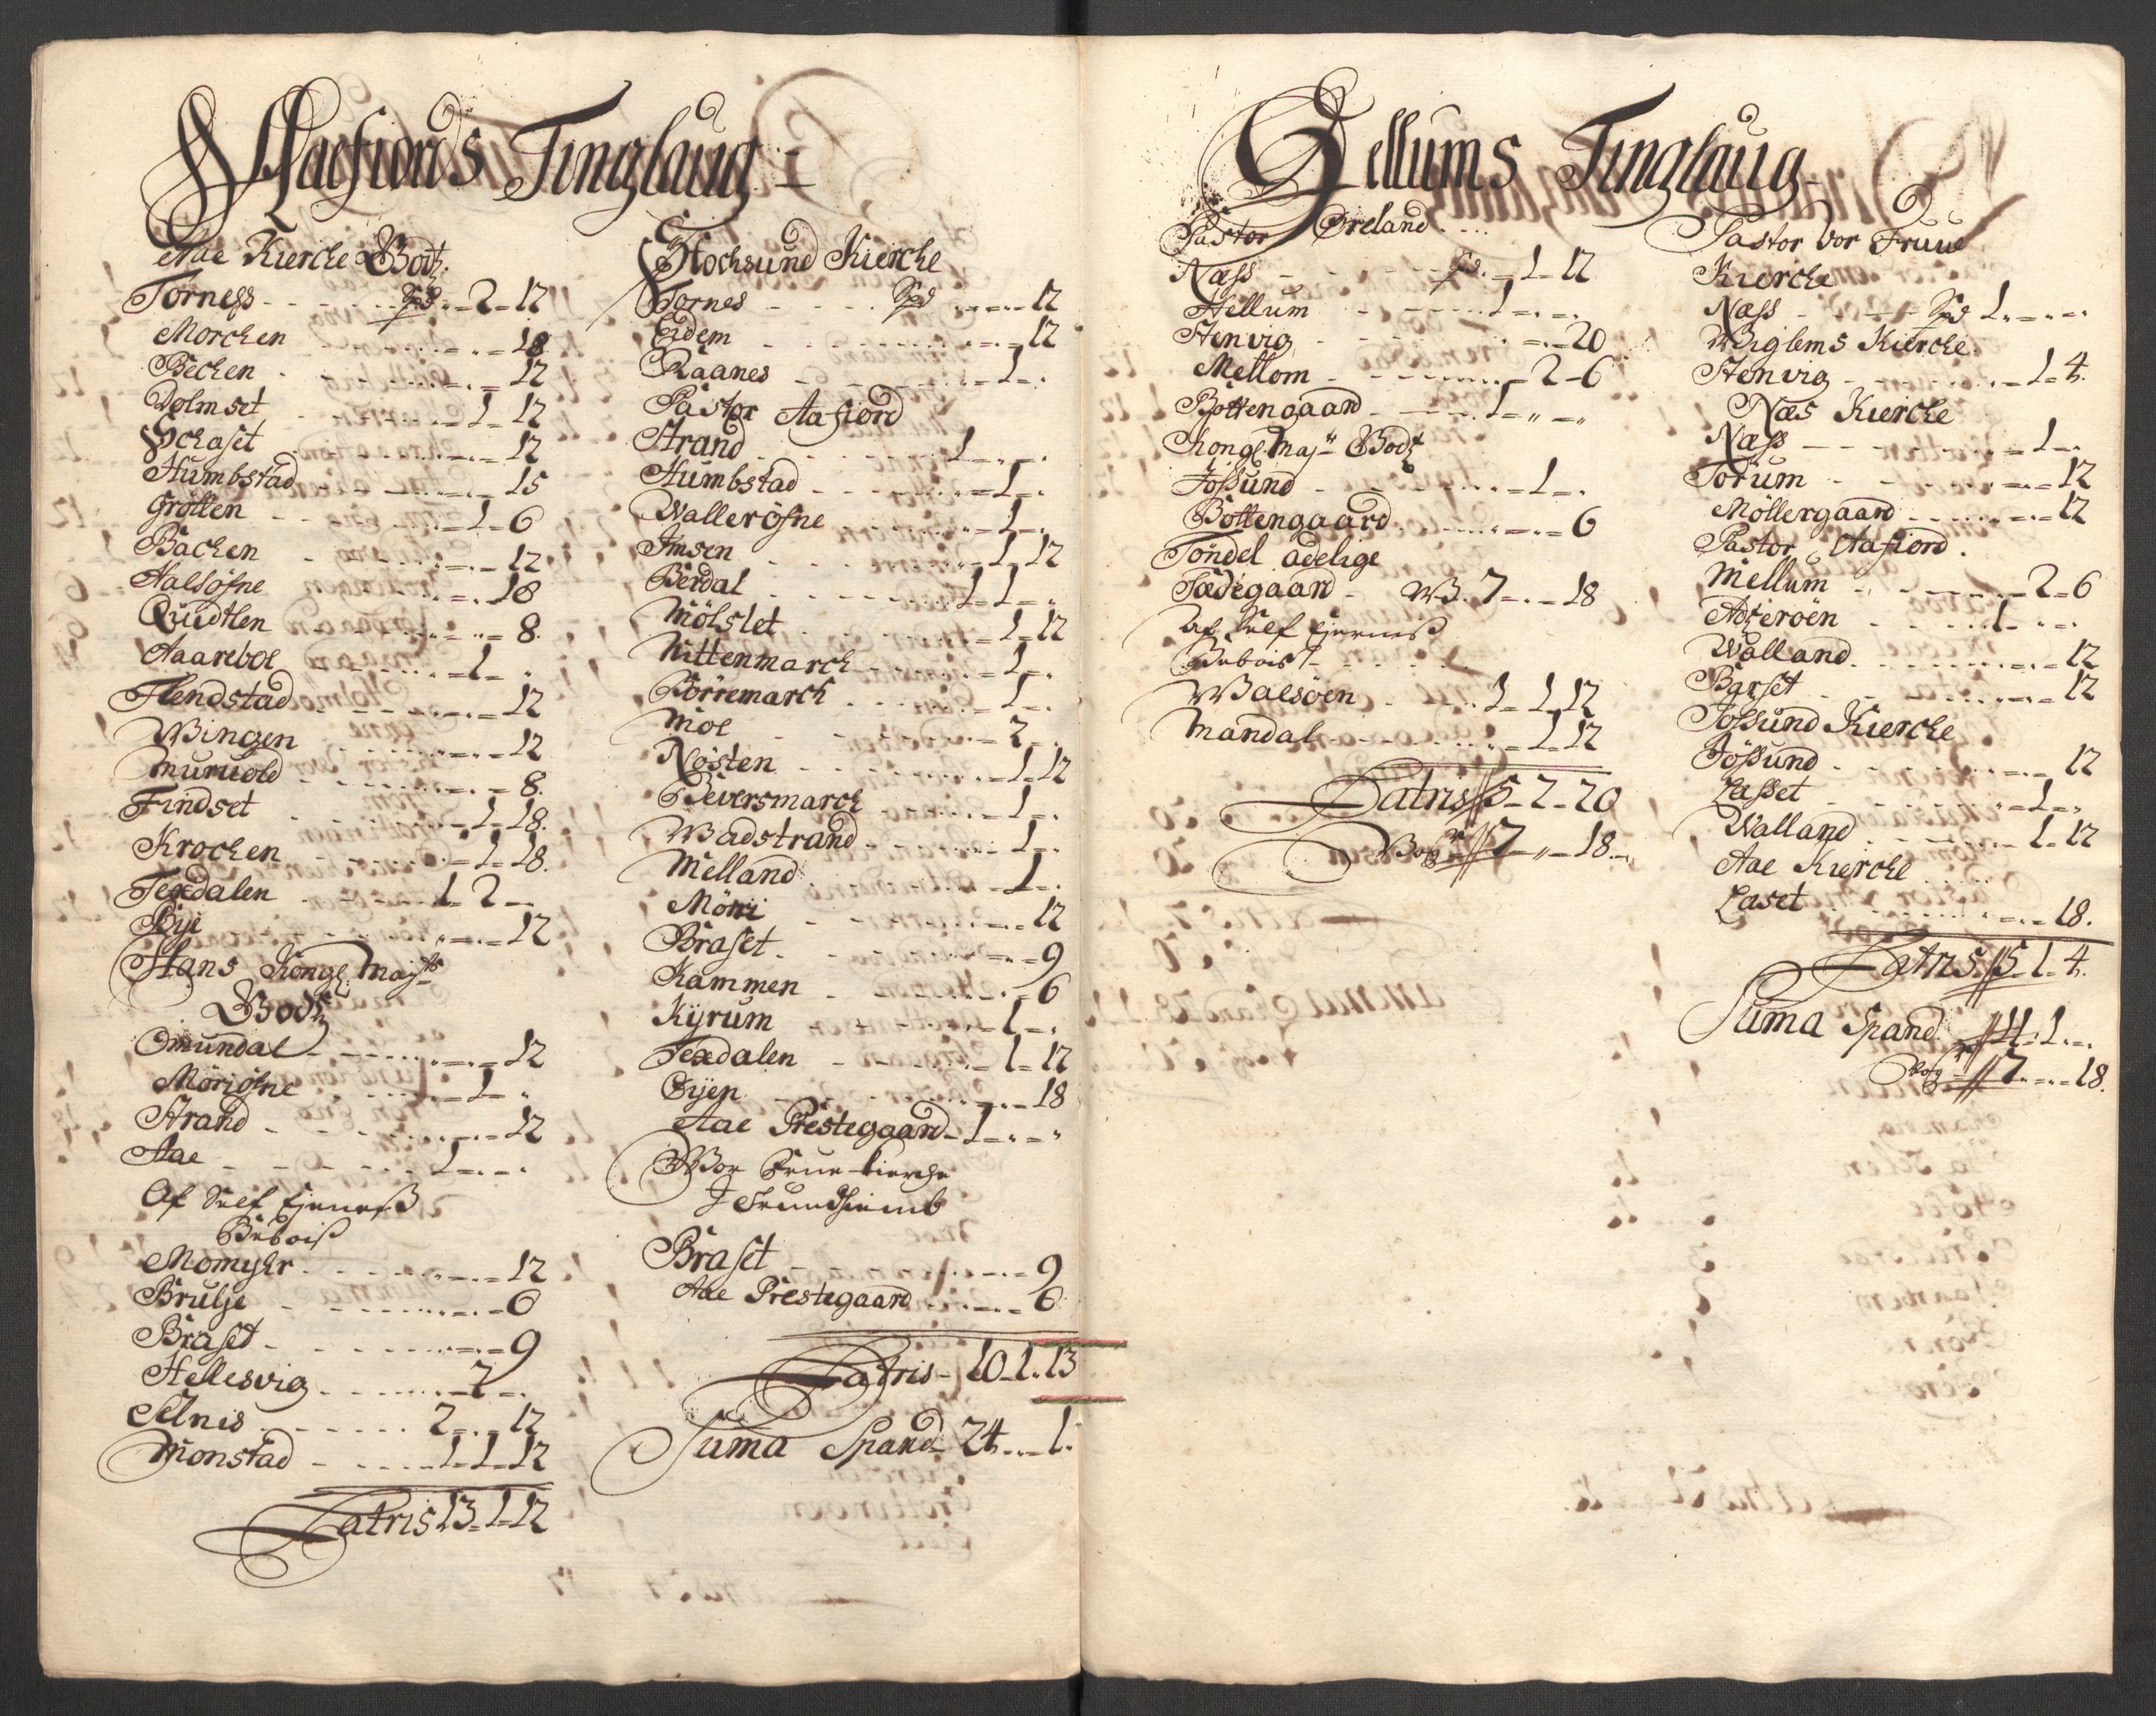 Aaefiords Tinglaug
Aae Kierche Bodz
Torness Spd - 2 - 12
Morchen - 18
Bechen - 12
Dolmset - 1 - 12
Schaset - 12
Humbstad - 15
Grötten - 1 - 6
Bachen - 12
Aalsöfne - 18
Quidtlen - 8
Aaareboe - 1 -
Hendstad - 12
Wingen - 12
Muruold - 8
Findset - 1 - 18
Krochen - 1 - 18
Texdalen - 1 - 2 -
Bye - 12
Hans Kongl: Maÿts
Bodz
Omundal - 12
Möriofne - 1 -
Strand - 12
Aae - 1 - -
Af Self Ejerness
Bebois
Momyhr - 12
Brulse - 6
Braset - 9
Hellesvig - 2 -
Selnis - 2 - - 12
Monstad - 1 - 1 - 12
Latris 13 - 1 - 12
Stochsund Kierche
Tornes Spd - 12
Eidem - 12
Raanes - 1 -
Pastor Aafiord
Strand - 1 - -
Humbstad - 1 -
Walleröfne - 1 -
Imsen - 1 - 12
Berdal - 1 - 1 -
Mölslet - 1 - 12
Nittenmarch - 1 -
Börremarch - 1 -
Moe - 2 -
Nösten - 1 - 12
Beversmarch - 1 -
Wadstrand - 1 -
Melland - 1 -
Mörri - 12
Braset - 9
Kammen - 6
Kyrum - 1 -
Texdalen - 1 - 12
Öyen - 18
Aae Prestegaard - 1 - -
Wor Frue Kierche
I Trundhiemb
Braset - 9
Aae Prestegaard - 6
Latris - 10 - 1 - 13
Suma Spand 24 - - 1
Bellums Tinglaug
Pastor Øreland
Næss Spd - 1 - 12
Hellum - 1 - -
Stenvig - 20
Mellom - 2 - 6
Bottengaard - 1 - -
Kongl: Maj:ts Bodz
Jössund - 1 -
Bottengaard - 6
Töndel adelige
Sædegaard W 7 - - 18
Af Self Ejerniss
Bebois
Walsöen - 1 - 1 - 12
Mandal - 1 - 12
Latris 5 - 2 - 20
Wog 7 - - 18
Pastor Vor Fruue
Kierche
Næss Spd 1 - - -
Wiglems Kierche
Stenvig - 1 - 4
Næs Kierche
Næss - 1 -
Torum - 12
Möllergaard - 12
Pastor Aafiord
Mellum - 2 - 6
Adzeroën - 1 - -
Walland - 12
Barset - 12
Jossund Kierche
Jössund - 12
Lasset - 1 -
Walland - 1 - 12
Aae Kierche
Laset - 18
Latris 5 - 1 - 4
Suma Spand 11 - 1 - -
Wog 7 - - 18